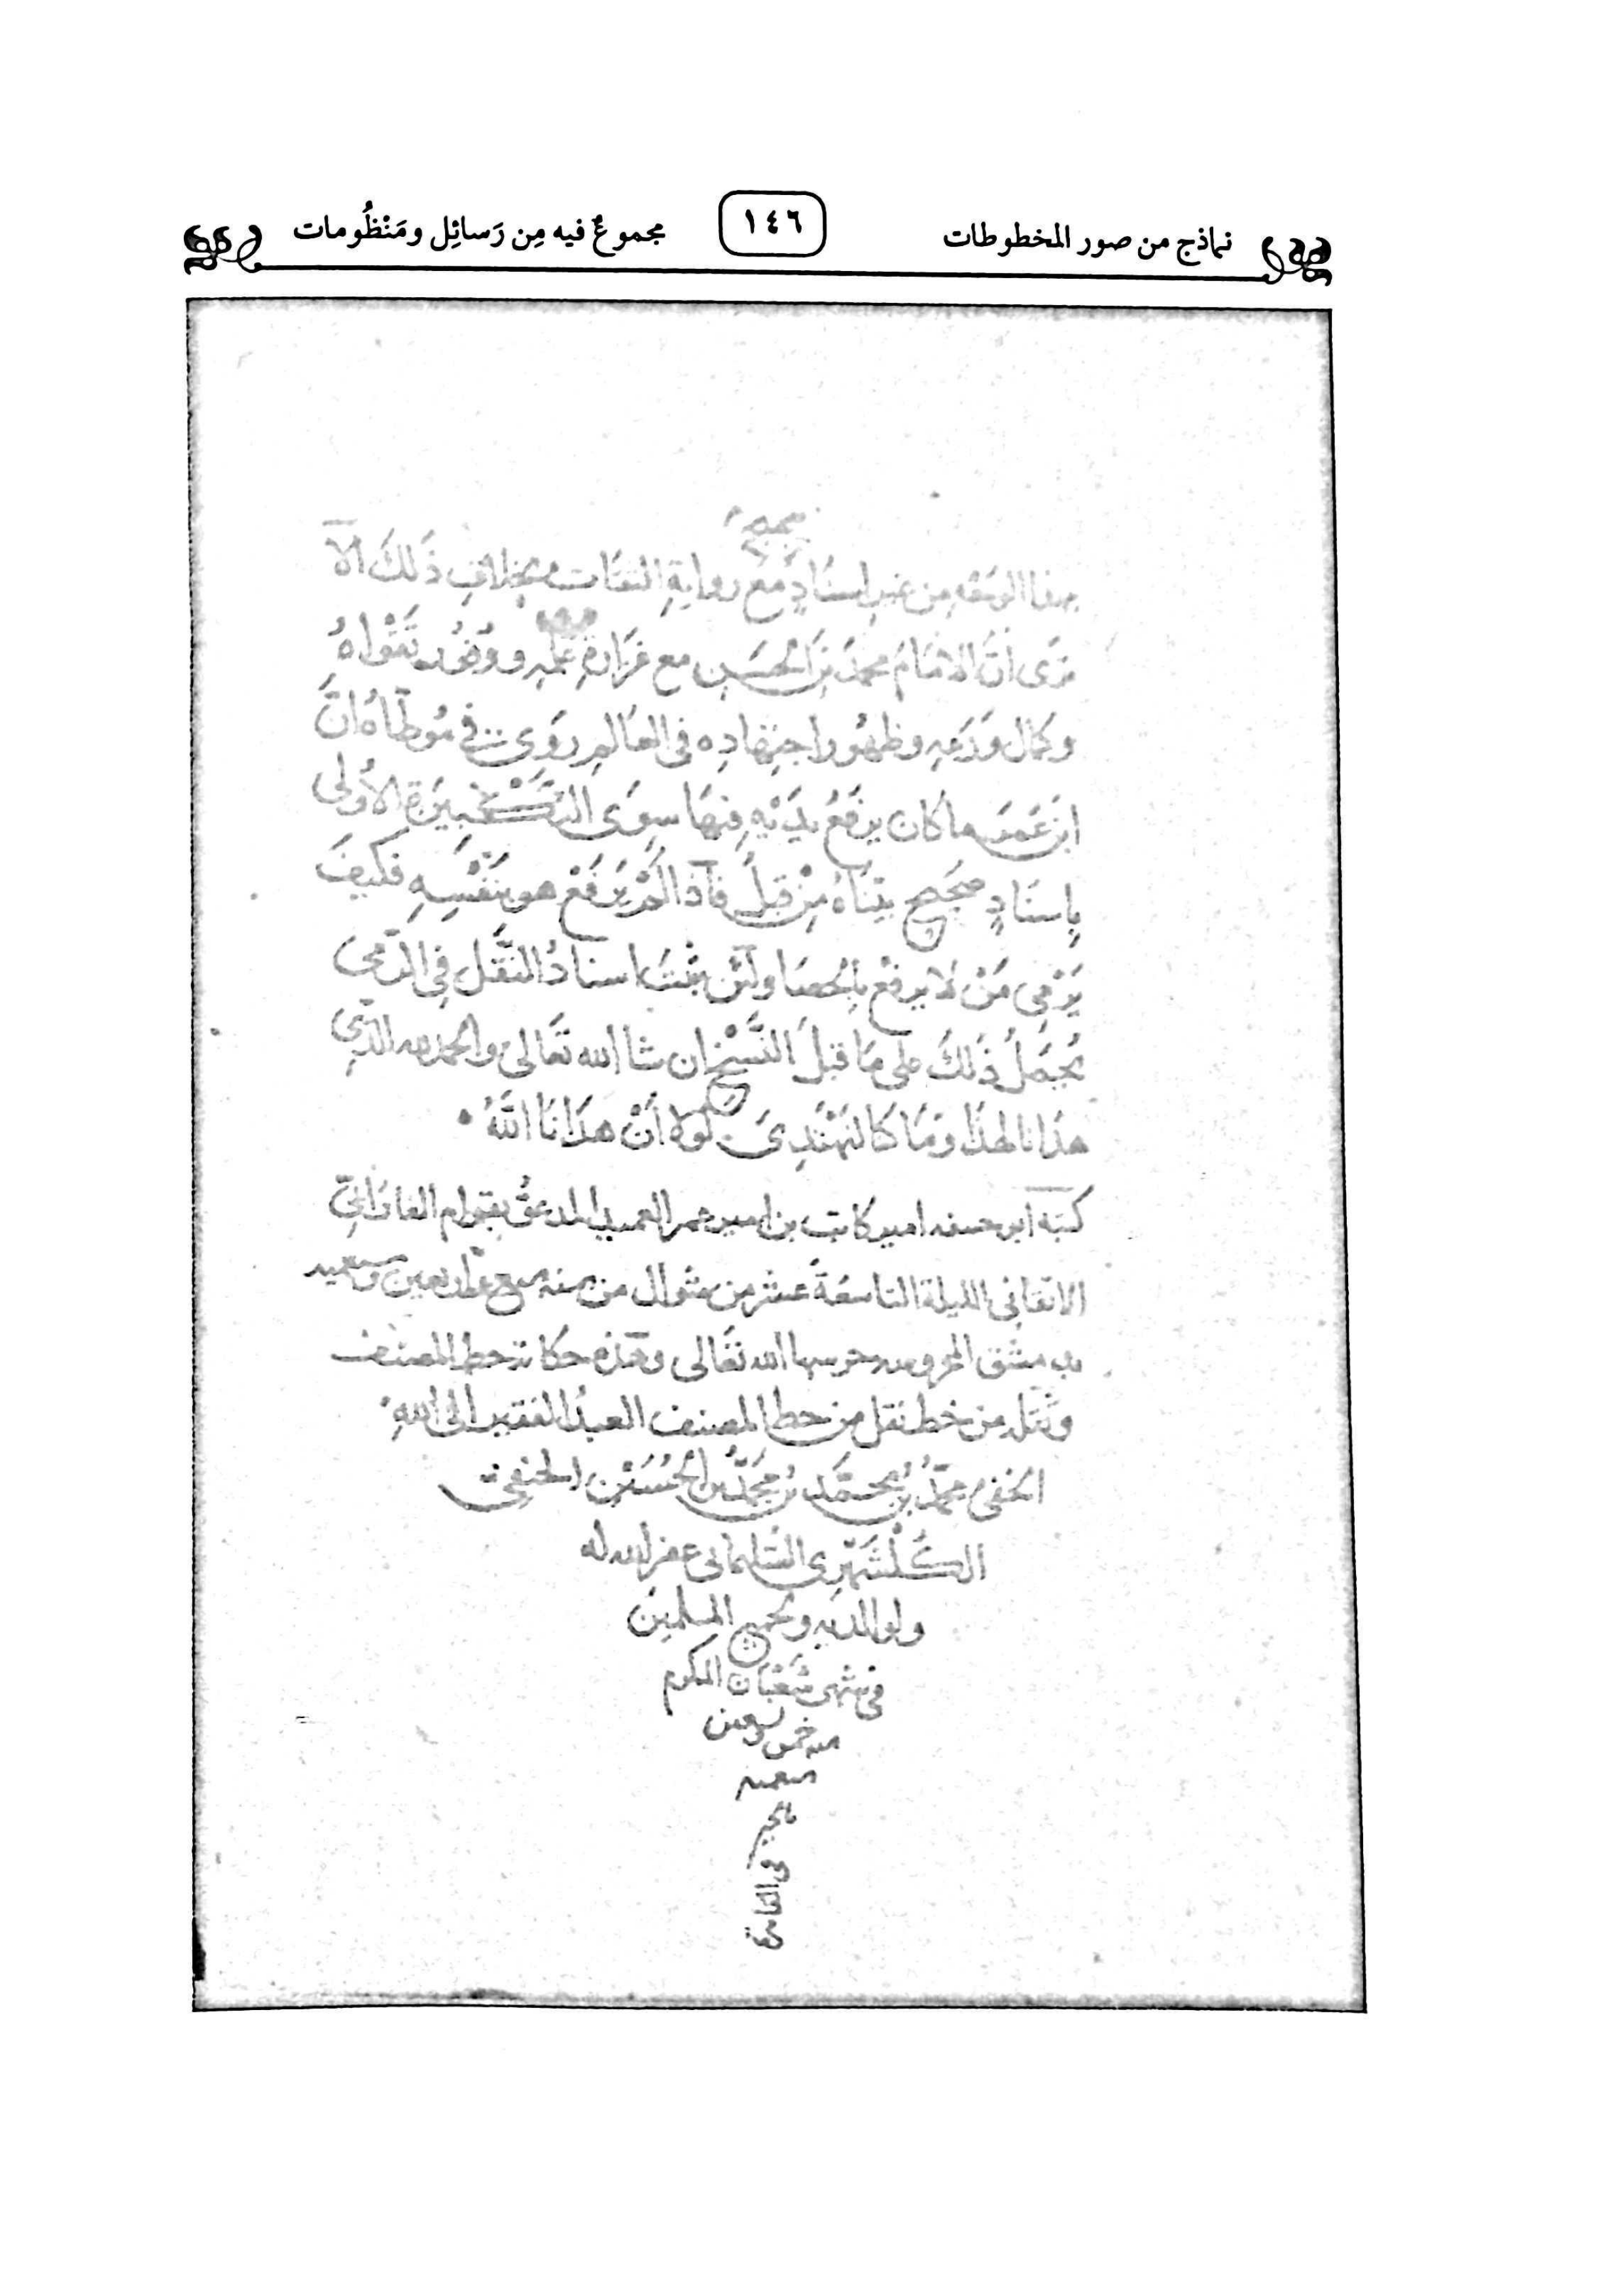 نماذج من صور المخطوطات
١٤٦
مجموعٌ فيه مِن رَسائِل ومَنْظُومات
صحيح
من غير اسنادٍ مع روايةِ الثقات بخلافِ ذَلكَ ألا
ترَى انَّ الامَامَ محمدَ بنَ الحسَنِ مع غزَارةِ علمِهِ ووُفُورِ تَقْواهُ
وكمال وَرَعِهِ وظهُور اجتهادِه فى العَالمِ رَوَى فى مُوطّاهُ انَّ
ابنَ عُمَرَ ما كان يرفَعُ يدَيْهِ فيهَا سِوَى التكْبيرَةِ الأولى
بإسنَادٍ صحيحٍ بيّنَّاهُ مِنْ قبلُ فاذَا لمْ يَرفَعْ هو بنَفْسِهِ فكيفَ
يَرْمِى مَنْ لا يرفع بالحصَا ولئن ثبتَ اسنادُ النَّقْل فِى الرَّمى
يُحمَلُ ذَلكَ على مَا قبلَ النَّسْخِ ان شا الله تعَالى والحمد لله الذِى
هدَانا لهذَا ومَا كنا لنهْتَدِىَ لَولا أنْ هدَانَا اللهُ
كتبه ابو حنيفه امير كاتب بن امير عمر العميد المدعوُّ بقوام الفارَابىّ
الاتقانى الليلة التاسعَةَ عشر من شوال من سنه سبع واربعين وسبعميه
بدمشق المحروسه حرسها الله تعَالى وهَذه حكاية خط المصنف
ونقَلَه مِن خط نقل من خط المصنف العبدُ الفقير الى اللهِ
الخفى محمّدُ بنُ محمّدِ بنِ محَمَّدِ بن الحُسَيْن الحنفى
الكُلْشَهْرِى السُّليمانى غفر الله له
ولوالديه ولجميع المسلمين
فى شهر شعْبَان المكرم
سنه خمس
سبعميه
فى القاهرة